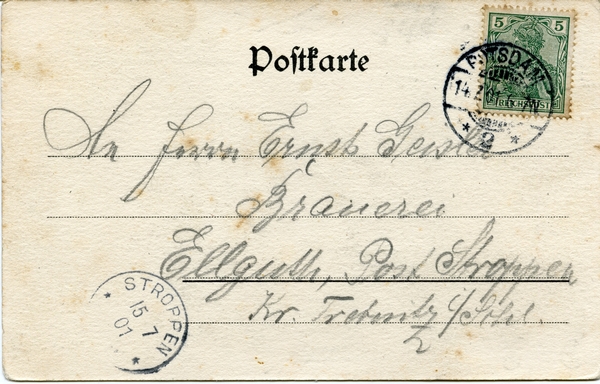 Postkarte
5 5
REICHSPOST
POTSDAM
14.7.01
* 2 *
An Herrn Ernst Geisler
Brauerei
Ellguth, Post Stroppen
Kr. Trebnitz i/Schl.
STROPPEN
15 7
01